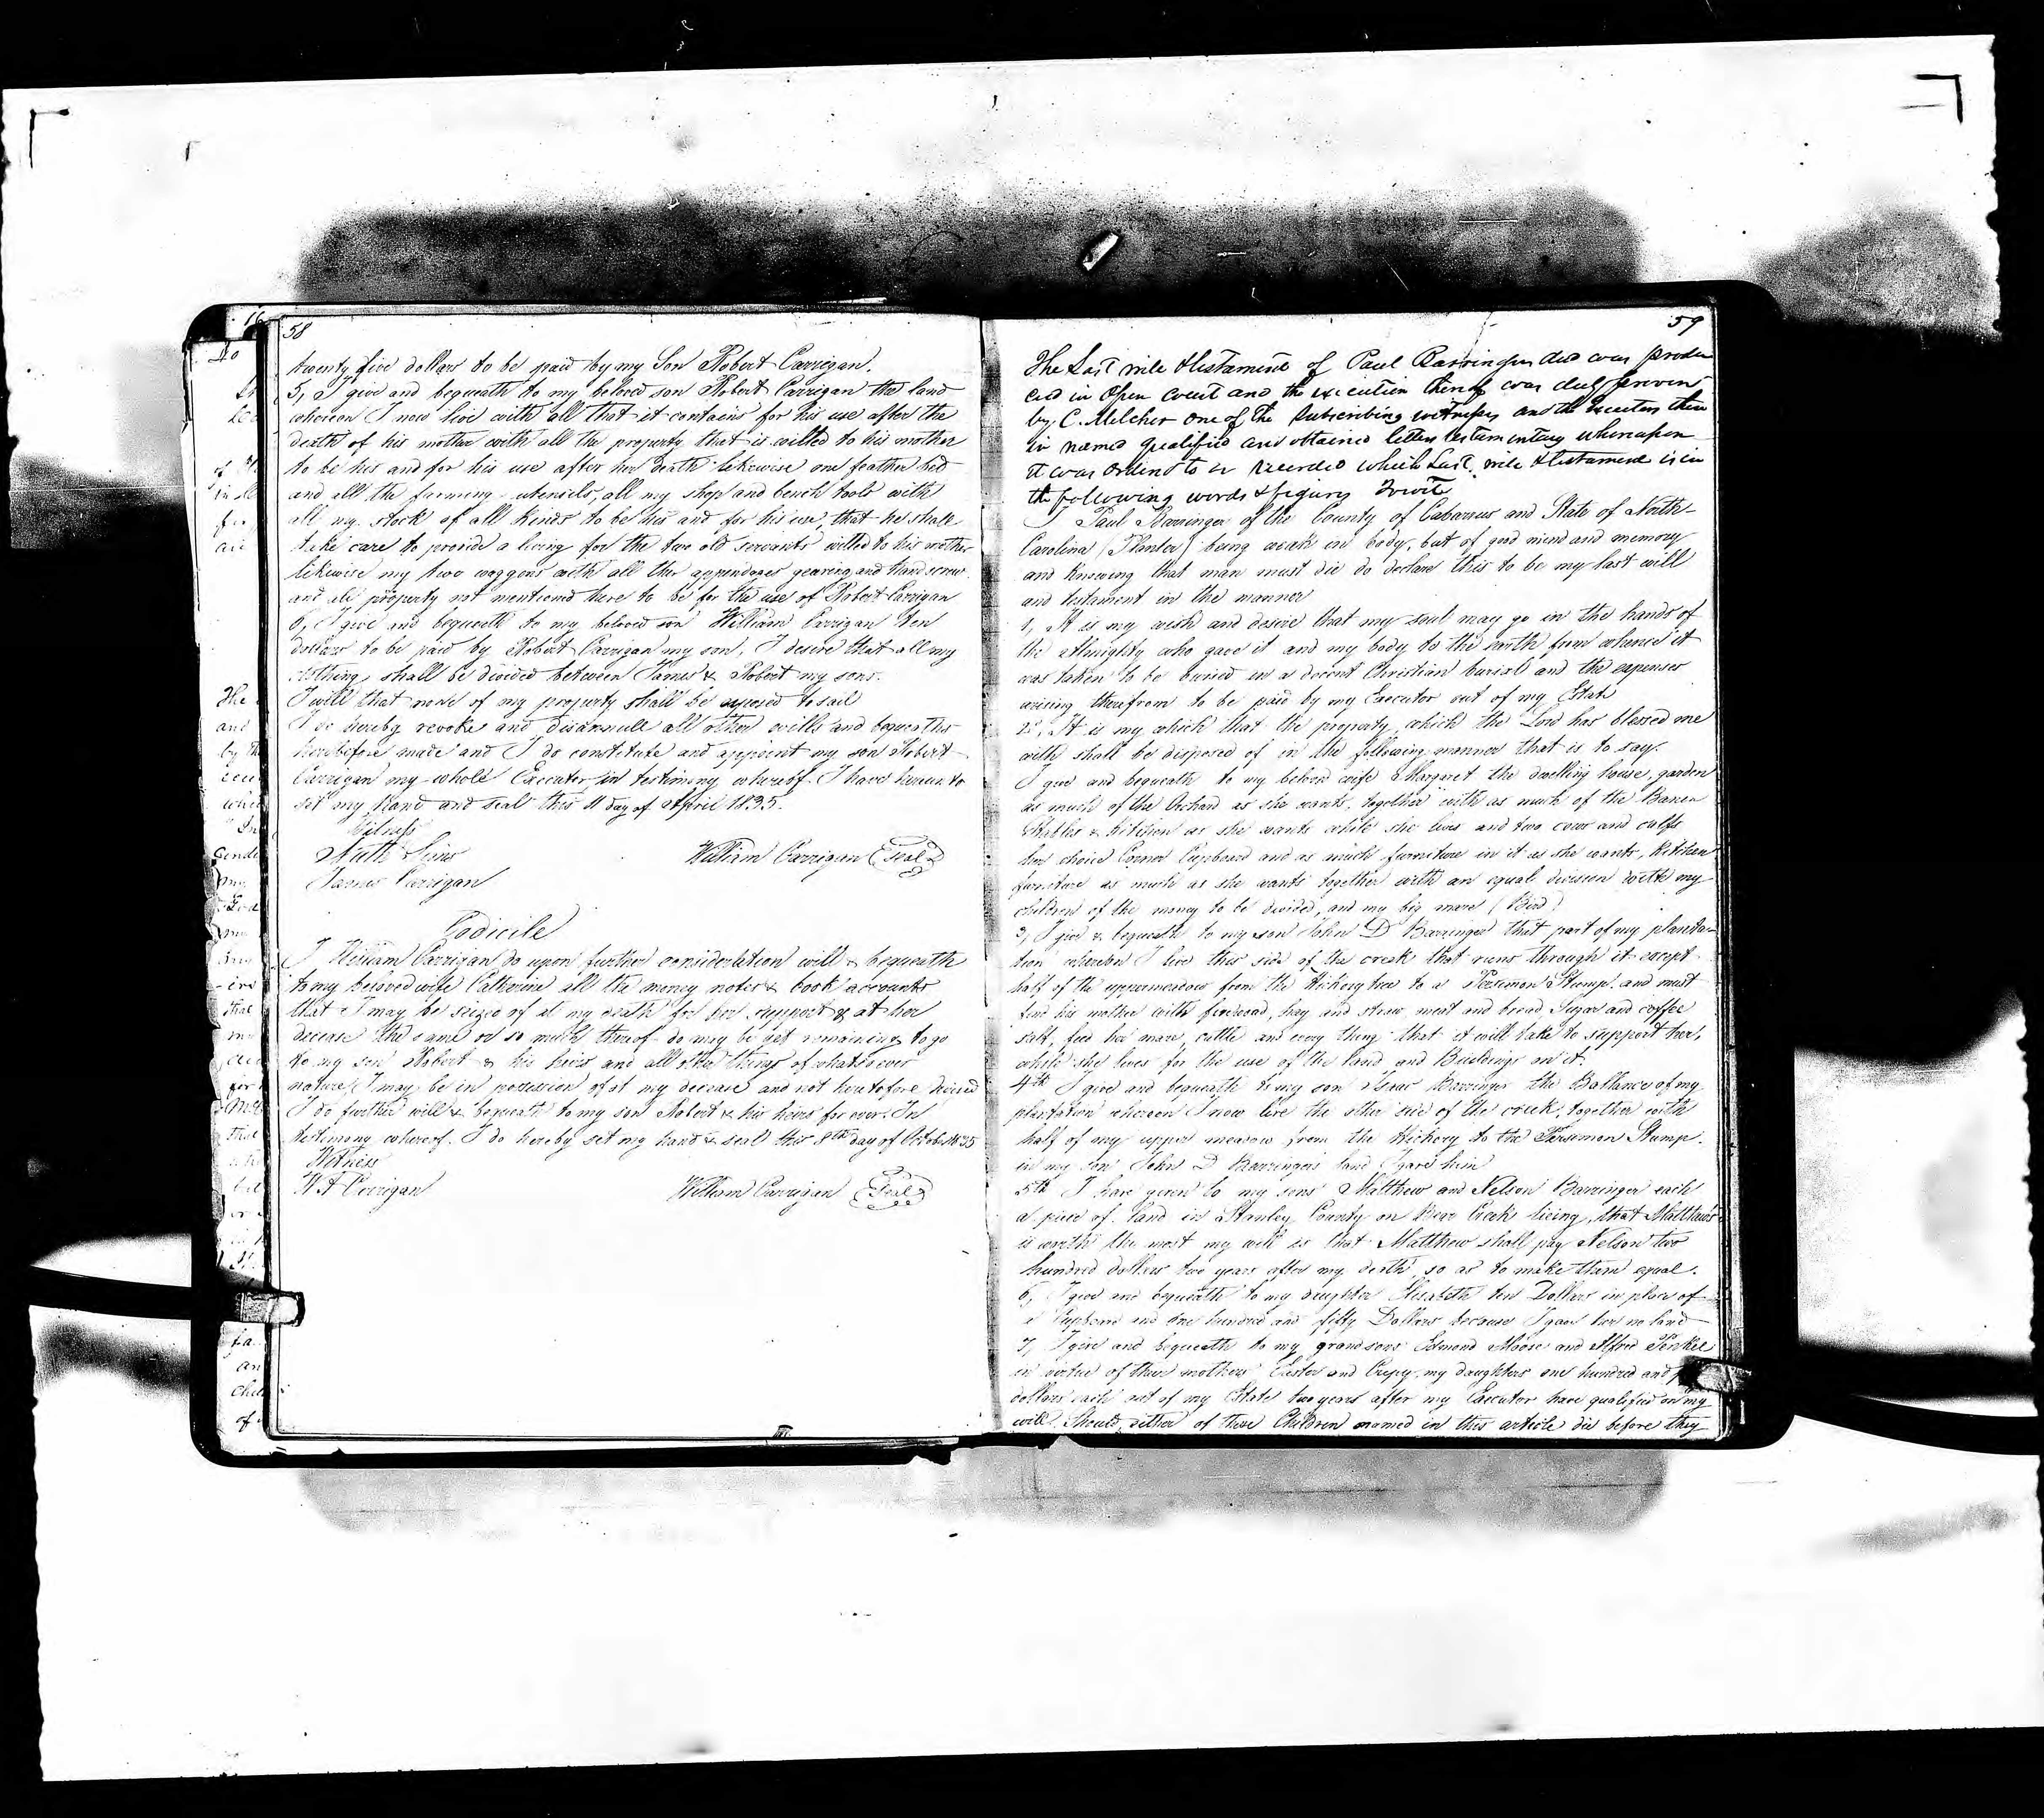 58
twenty five dollars to be paid by my Son Robert Carrigan.
5, I give and bequeath to my beloved son Robert Carrigan the land
whereon I now live with all that it contains for his use after the
death of his mother with all the property that is willed to his mother
to be his and for his use after her death likewise one feather bed
and all the farming utensils, all my shop and bench tools with
all my stock of all kinds to be his and for his use, that he shall
take care to provide a living for the two old servants willed to his mother
likewise my two waggons with all ther appendages gearing and hand screw
and all property not mentioned here to be for the use of Robert Carrigan
6, I give and bequeath to my beloved son William Carrigan ten
dollars to be paid by Robert Carrigan my son, I desire that all my
clothing shall be divided between James & Robert my sons.
I will that none of my property shall be exposed to sail
I do hereby revoke and disannull all other wills and bequeaths
heretofore made and I do constitute and appoint my son Robert
Carrigan my whole Executor in testimony whereof I have hereunto
set my hand and seal this 11 day of April 1835.
Witness
William Carrigan (Seal)
James Carrigan
Codicile
I William Carrigan do upon further consideration will & bequeath
to my beloved wife Catherine all the money notes & book accounts
that I may be seized of at my death for her support & at her
decease the same or so much thereof do may be yet remaining to go
to my son Robert & his heirs and all other things of whatsoever
nature I may be in possession of at my decease and not heretofore devised
I do further will & bequeath to my son Robert & his heirs for ever. In
testimony whereof I do hereby set my hand & seal this 8th day of October 1835
Witness
W A Carrigan William Carrigan (Seal)
59
The Last will & testament of Paul Barringer decd was produ
ced in open court and the execution thereof was duly proven
by C. Melcher one of the subscribing witnesses and the Executors there
in named qualified and obtained letters testamentary whereupon
it was ordered to be recorded which Last will & testament is in
the following words & figures Towit
I Paul Barringer of the County of Cabarrus and State of North
Carolina (Planter) being weak in body, but of good mind and memory
and knowing that man must die do declare this to be my last will
and testament in the manner
1, It is my wish and desire that my soul may go in the hands of
the Almighty who gave it and my body to the earth from whence it
was taken to be buried in a decent Christian burial and the expenses
arising therefrom to be paid by my Executor out of my Estate
2, It is my which that the property which the Lord has blessed me
with shall be disposed of in the following manner that is to say.
I give and bequeath to my beloved wife Margaret the dwelling house, garden
as much of the Orchard as she wants, together with as much of the Barn
Stables & Kitchen as she wants while she lives and two cows and calfs
her choice Corner Cupboard and as much furniture in it as she wants, Kitchen
furniture as much as she wants together with an equal division with my
children of the money to be divided, and my big mare (Bird)
3, I give & bequeath to my son John D Barringer that part of my planta-
tion whereon I live this side of the creek that runs through it except
half of the uppermeadow from the Hickory tree to a Persimon Stump. and must
find his mother with firewood, hay and straw meat and bread, Sugar and coffee
salt, feed her mare, cattle and every thing that it will take to support her,
while she lives for the use of the land and Buildings on it.
4th I give and bequeath to my son Barringer the Ballance of my
plantation whereon I now live the other side of the creek, together with
half of my upper meadow from the Hickory to the Persimon Stump.
in my son John D Barringers land I gave him
5th I have given to my sons Matthew and Nelson Barringer each
a piece of land in Stanley County on Bear Creek that Matthews
is worth the most my will is that Matthew shall pay Nelson two
hundred dollars two years after my death so as to make them equal.
6, I give and bequeath to my daughter Elisabeth ten Dollars in place of
a Cupboard and one hundred and fifty Dollars because I gave her no land
7, I give and bequeath to my grandsons Edmond Moose and Alfred
in virtue of their mothers Easter and my daughters one hundred and
dollars each out of my Estate two years after my Executor have qualified on my
will. Should either of these Children named in this article die before they